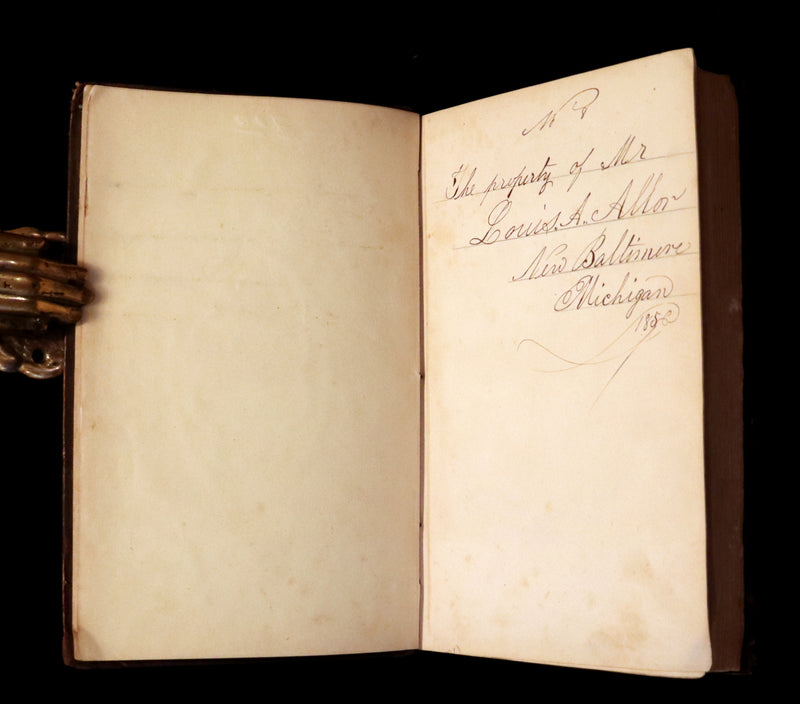 The property of Mr
Louis. A. Allor
New Baltimore
Michigan